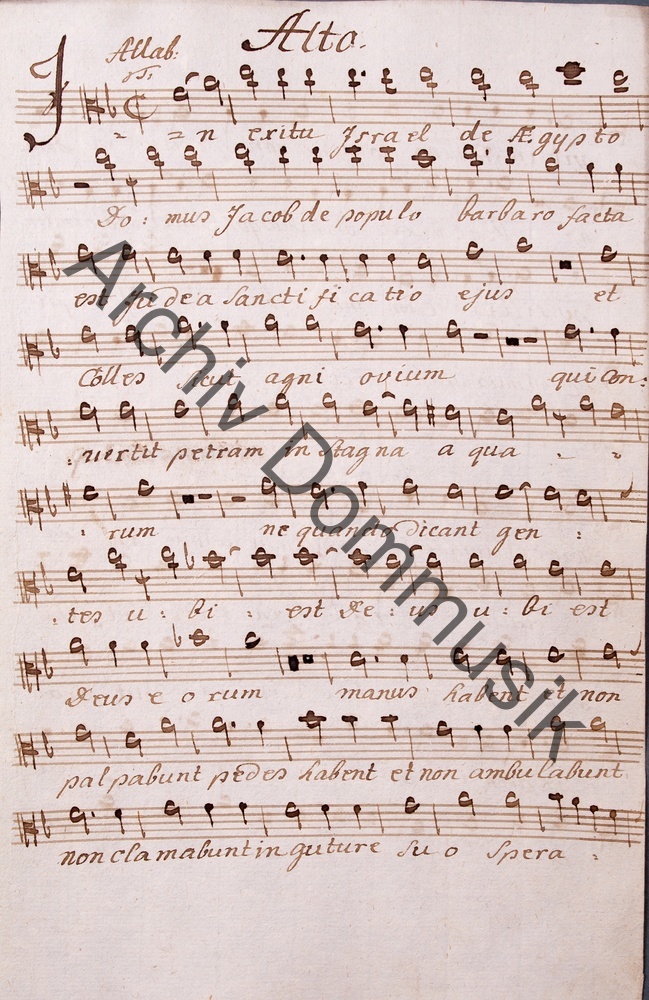 Alto.
Allab:
Jn exitu Jsrael de Ægypto
Do: mus Jacob de populo barbaro facta
est Judea Sanctificatio ejus et
Colles sicut agni ovium qui Con:
: vertit petram in Stagna a qua - -
: rum ne quando dicant gen :
: tes u : bi : est De : us u : bi est
Deus e o rum manus habent et non
pal pabunt pedes habent et non ambulabunt
non clamabunt in guture su o Spera :
Archiv Dommusik